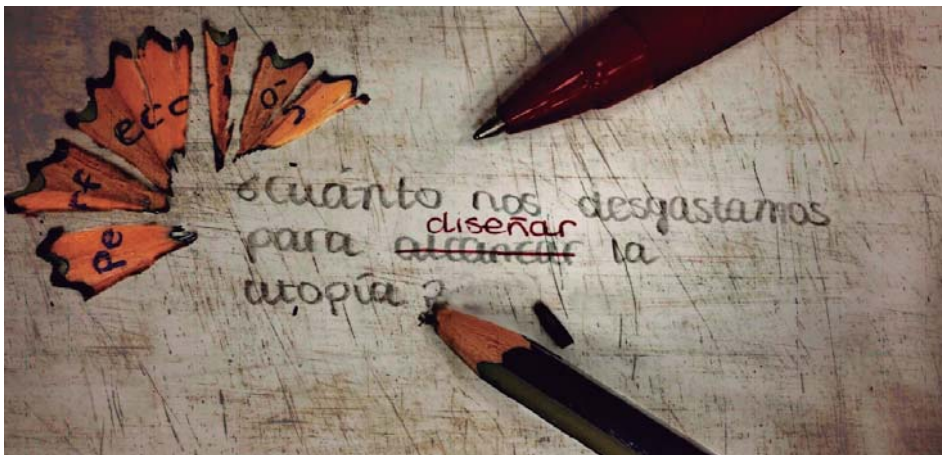 Pe rf ecc i ó n
¿cuánto nos desgastamos
diseñar
para alcanzar la
utopía?